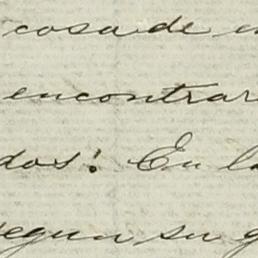 cosa de
encontrar
dos! En la
segun su g